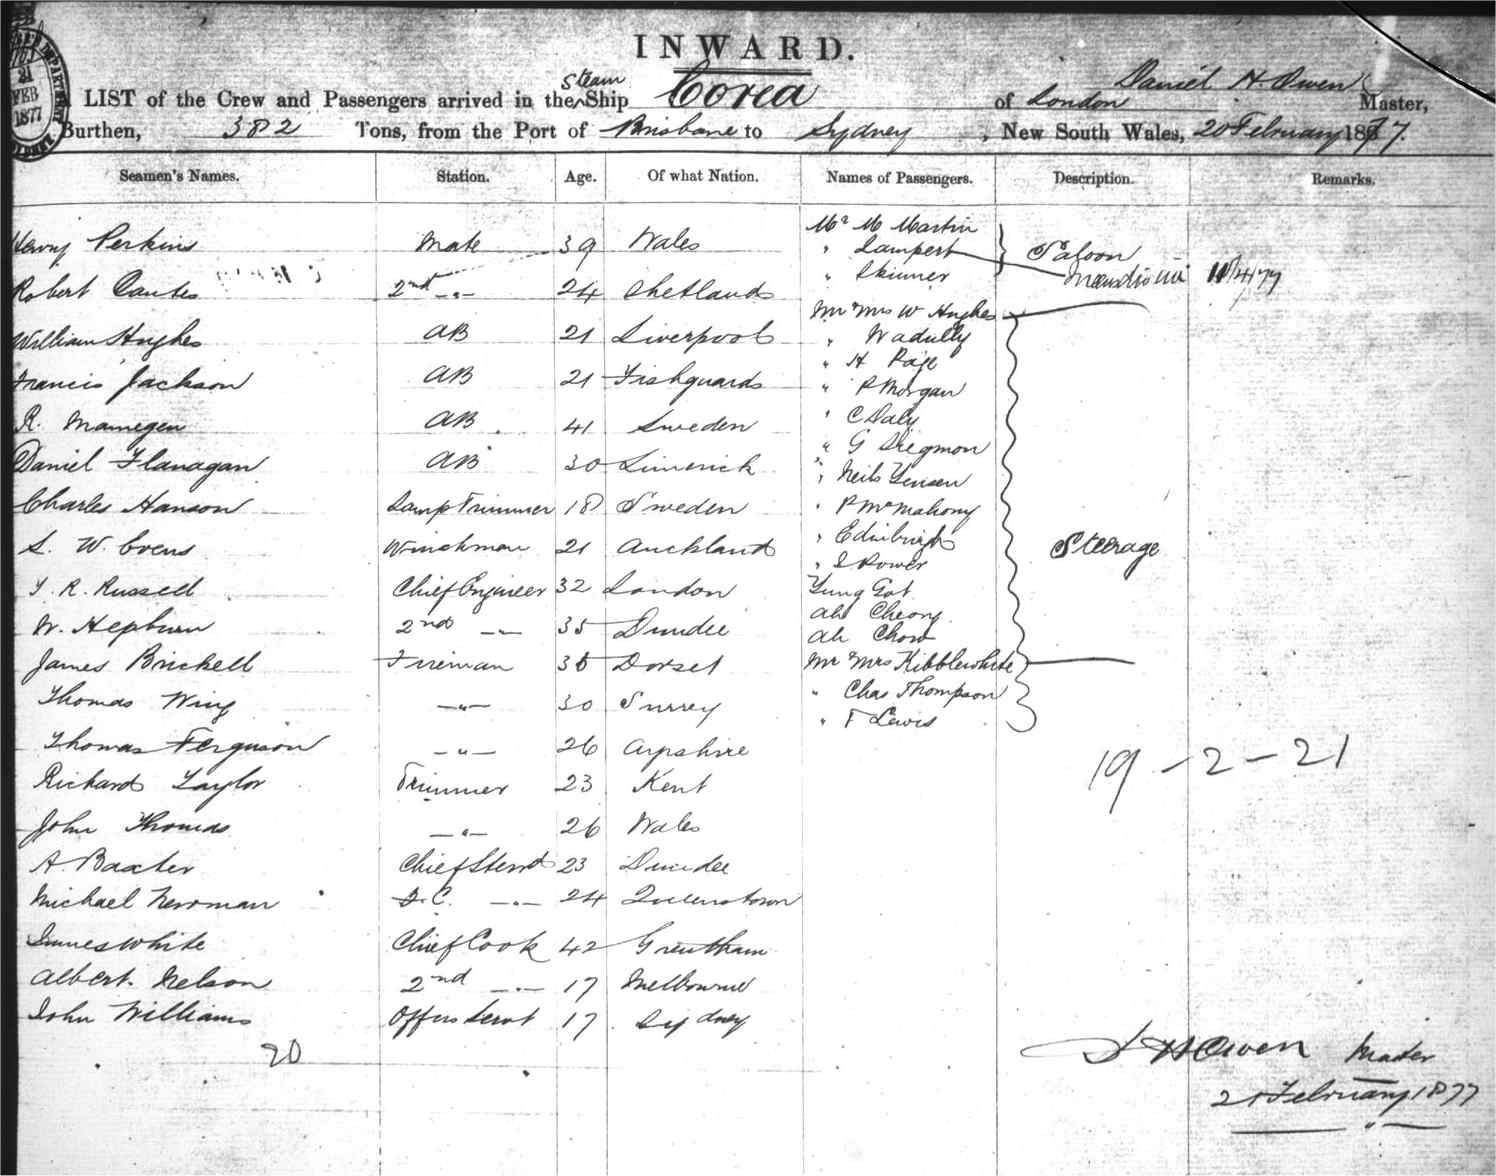 21
FEB
1877
INWARD.
LIST of the Crew and Passengers arrived in the Steam Ship Corea of London Daniel H Owen Master,
Burthen, 382 Tons, from the Port of Brisbane to Sydney, New South Wales, 20 February 1877.
Seamen's Names. Station. Age. Of what Nation. Names of Passengers. Description. Remarks.
Mr M Martin
Henry Perkins Mate 39 Wales " Lampert Saloon
" Skinner 11/4/77
Robert 2nd -"- 24 Shetlands
Mr Mrs W Hughes
William Hughes AB 21 Liverpool "
" H Page
Francis Jackson AB 21 Fishguards " P Morgan
R. AB. 41 Sweden " C Daly
" G
Daniel Flanagan AB 30 Limerick " Neils Jensen
Charles Hanson Lamp Trimmer 18 Sweden " P McMahony
S. W. Winchman 21 Auckland " Steerage
" S Power
J. R. Russell Chief Engineer 32 London Yung Got
W. Hepburn 2nd -"- 35 Dundee Ah Cheong
Ah Chow
James Brickell Fireman 35 Dorset Mr Mrs Kibblewhite
Thomas Wing -"- 30 Surrey " Chas Thompson
" F Lewis
Thomas Ferguson -"- 26 Ayrshire
19-2-21
Richard Taylor Trimmer 23 Kent
John Thomas -"- 26 Wales
A. Baxter Chief Stewd 23 Dundee
Michael Newman -"- 24 Queenstown
James White Chief Cook 42
Albert Nelson 2nd -"- 17 Melbourne
John Williams Offrs Servt 17 Sydney
20
D H Owen Master
21 February 1877